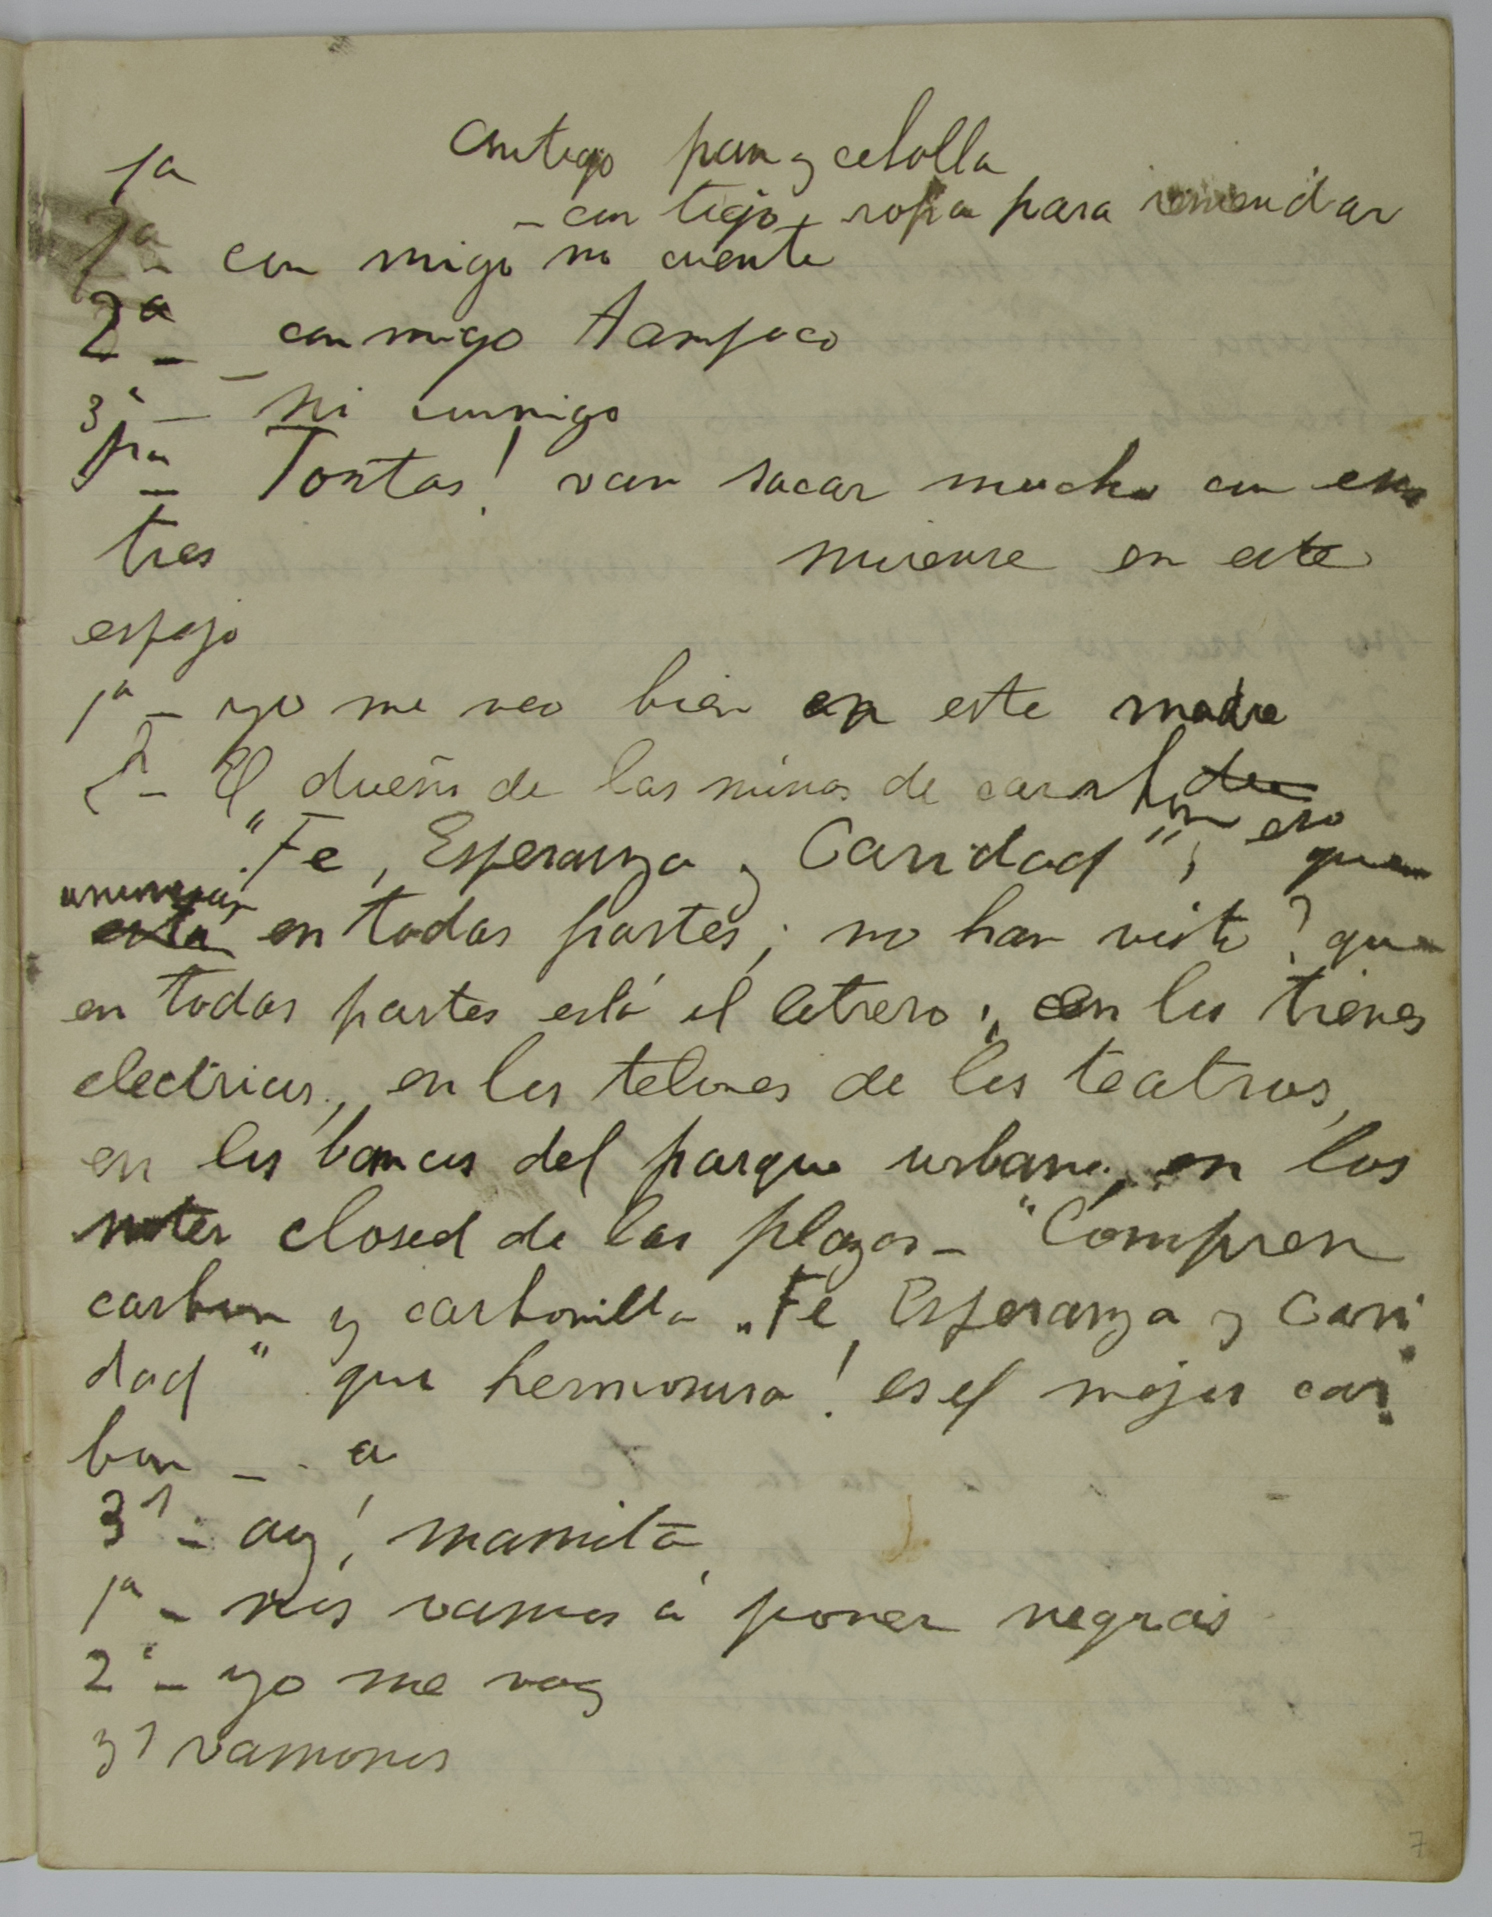 contigo pan y cebolla
1ª
- con tigo, ropa para remendar
1ª - con migo no cuente
2ª - conmigo tampoco
3ª - ni conmigo
Tontas! van sacar mucho con
tres mirense en este
espejo
1ª - yo me veo bien en este madre
2ª - El dueño de las minas de carbon
"Fe, Esperanza y Caridad", eso que
anuncian en todas partes; no han visto? que
en todas partes está el letrero; en los trenes
electricos, en los telones de los teatros,
en los bancos del parque urbano, en los
water closed de las plazas - "Compren
carbon y carbonilla "Fe, Esperanza y Cari
dad" que hermosura! es el mejor car
bon -
3ª - ay! mamita
1ª - nos vamos á poner negras
2ª - yo me voy
3ª vamonos
7